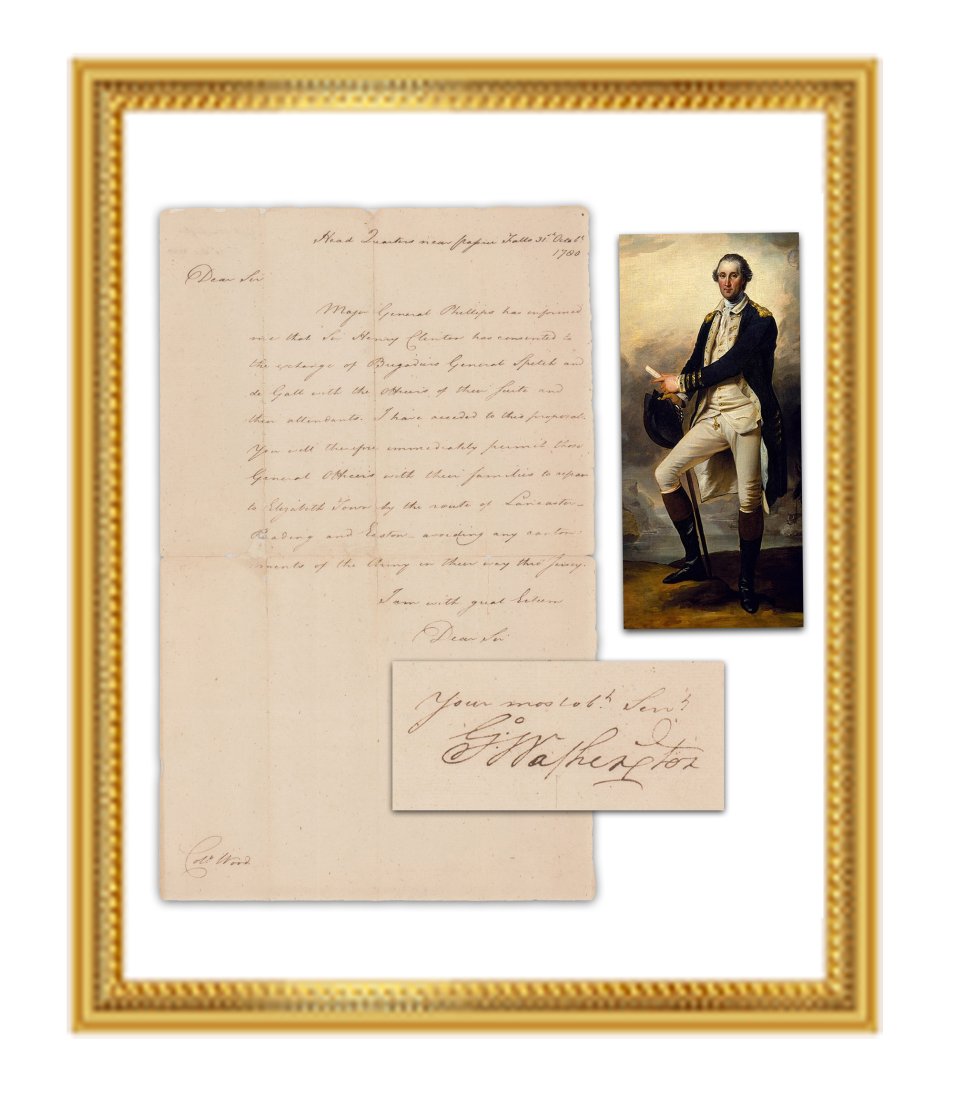 Head Quarters near Passaic Falls 31st Octobr
1780
Dear Sir
Major General Phillips has informed
me that Sir Henry Clinton has consented to
the exchange of Brigadiers General Specht and
de Gall with the Officers of their Suite and
their attendants. I have acceded to this proposal.
You will therefore immediately permit those
General Officers with their families to repair
to Elizabeth Town by the route of Lancaster
Reading and Easton avoiding any canton
ments of the Army in their way thro' Jersey.
I am with great Esteem
Dear Sir
Your most obt Servt
Go: Washington
Colo. Wood